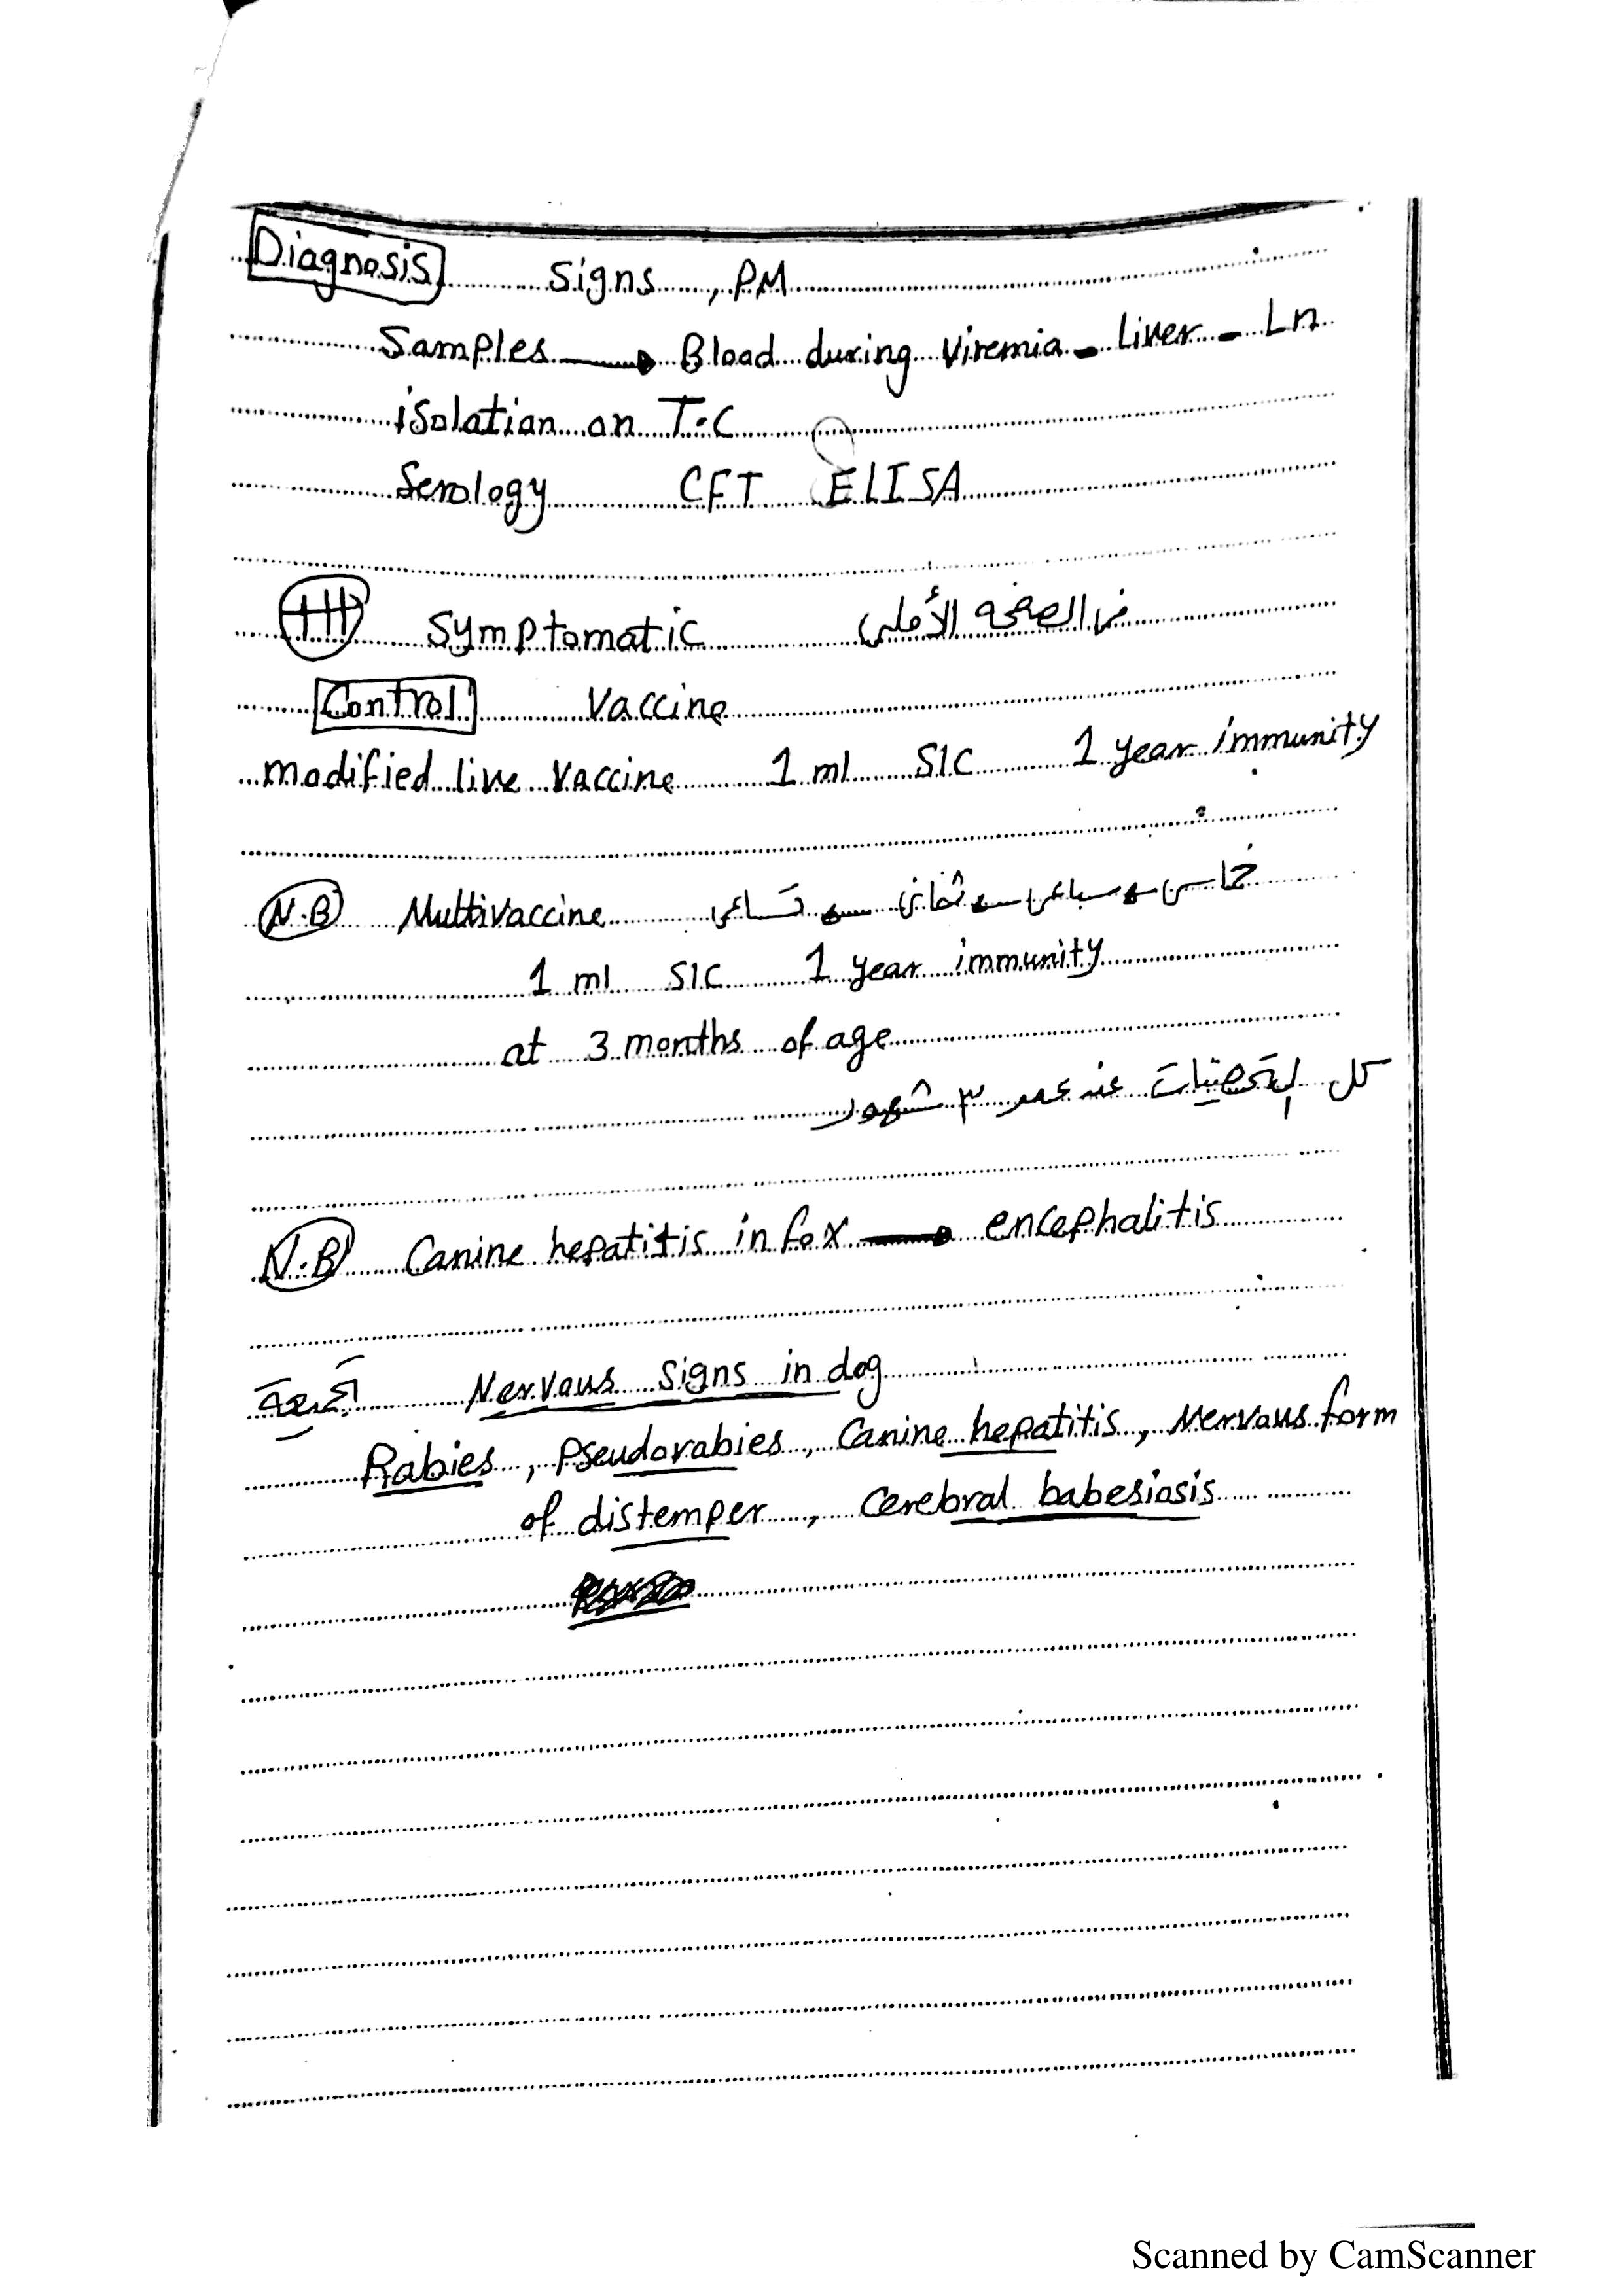 Diagnosis Signs , PM
Samples → Blood during Viremia - Liver - Ln
isolation on T.C
Serology CFT ELISA
ttt Symptomatic من الصفحه الأولى
Control Vaccine
modified live Vaccine 1 ml S/C 1 year immunity
N.B Multivaccine خماسى → سباعى → ثمانى → تساعى
1 ml S/C 1 year immunity
at 3 months of age
كل التحصينات عند عمر ٣ شهور
N.B Canine hepatitis in fox → encephalitis
Nervous Signs in dog
Rabies , Pseudorabies , Canine hepatitis , Nervous form
of distemper , Cerebral babesiosis
Scanned by CamScanner